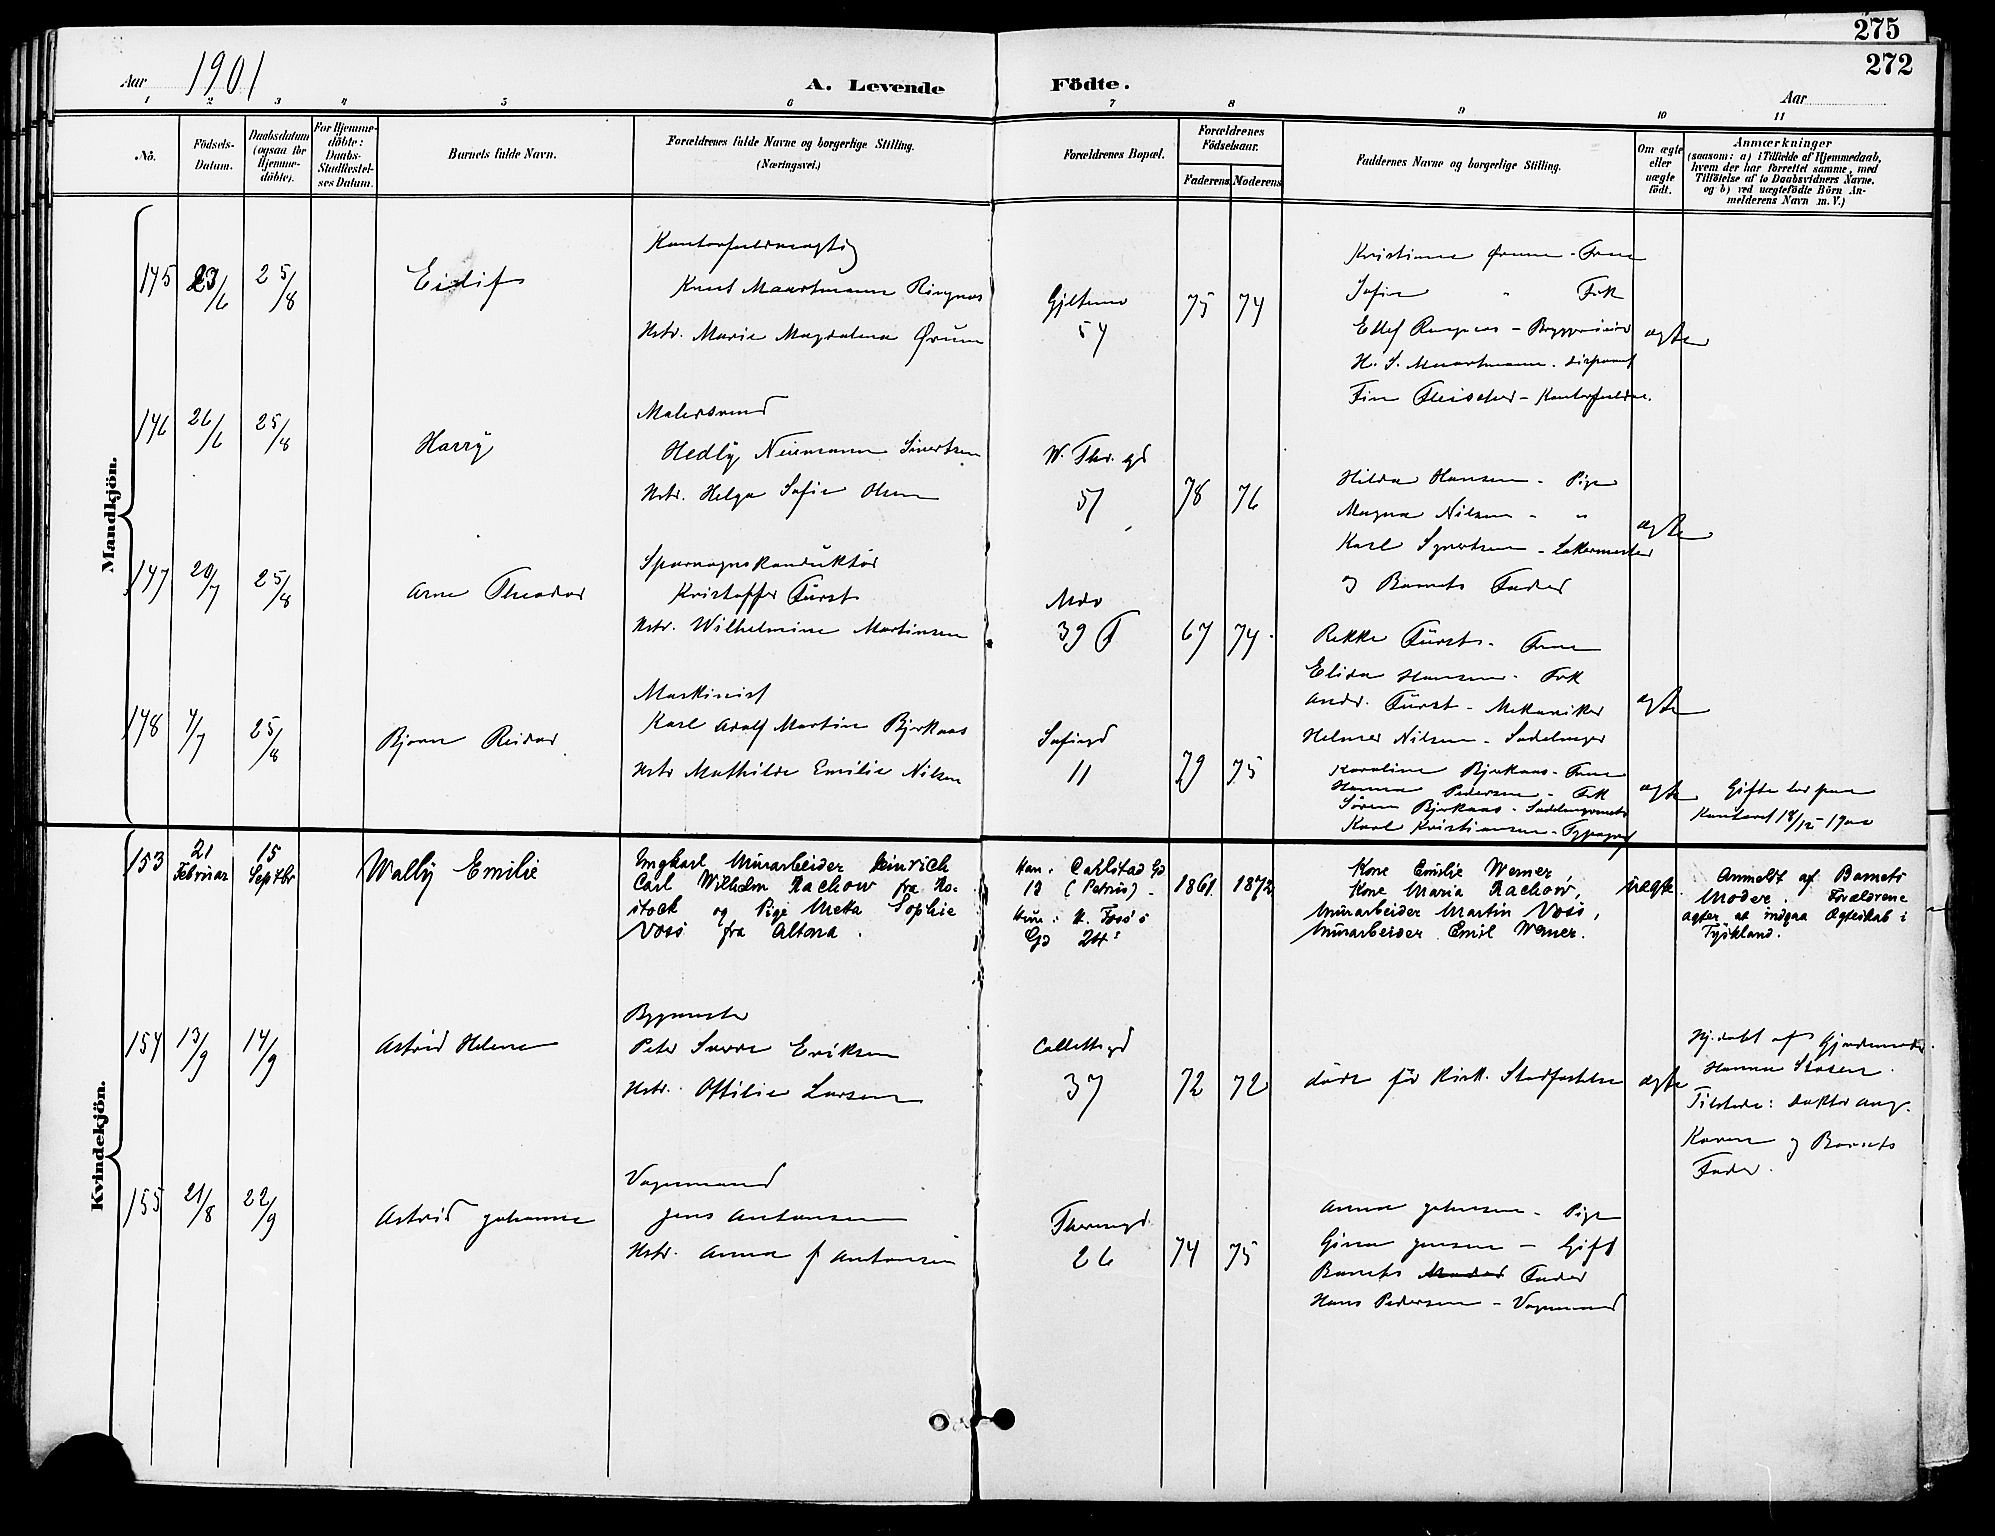 275
272
Aar 1901
A. Levende Födte.
Aar
1 2 3 4 5 6 7 8 9 10 11
No.
Födsels-Datum.
Daabsdatum (ogsaa for Hjemme-döbte).
For Hjemme-döbte: Daabs-Stadfæstel-ses Datum.
Barnets fulde Navn.
Forældrenes fulde Navne og borgerlige Stilling. (Næringsvei.)
Forældrenes Bopæl.
Forældrenes Födselsaar.
Faderens Moderens
Faddernes Navne og borgerlige Stilling.
Om ægte eller uægte födt.
Anmærkninger
(saasom: a) i Tilfælde af Hjemmedaab,
hvem der har forrettet samme, med
Tilföielse af to Daabsvidners Navne,
og b) ved uægtefödte Börn An-
melderens Navn m. V.)
Mandkjön.
145 23/6 25/8 Eilif
Kontorfuldmægtig
Knut Maartmann Ringnes
Hstr. Marie Magdalena Ørum
54
75 74
Kristiane Ørum - Frue
Sofie " Frk
Ellef Ringnes - Bryggerieier
H. S. Maartmann
Finn Fleischer - Kontorfuldm.
ægte
146 26/6 25/8 Harry
Malersvend
Hedly Neumann Sivertsen
Hstr. Helga Sofie Olsen
W. Thr. gd
57
78 76
Hilda Hansen - Pige
Magna Nilsen - "
Karl Syvertsen
og Barnets Fader
ægte
147 20/7 25/8 Arne Theodor
Sporvognskonduktør
Kristoffer Fürst
Hstr. Wilhelmine Martinsen
39
67 74
Rikke Fürst - Frue
Elida Hansen - Frk
Andr. Fürst - Mekaniker
Helmer Nilsen - Sadelmager
ægte
148 4/7 25/8 Bjarne Reidar
Maskinist
Karl Adolf Martin Bjerkaas
Hstr Mathilde Emilie Nilsen
Sofiegd
11
79 75
Karoline Bjerkaas - Frue
Hanna Pedersen - Frk
Søren Bjerkaas
Karl Kristiansen - Typograf
ægte
Gifte
Kontoret 18/12 1900
Kvindekjön.
153 21 Februar 15 Septbr Wally Emilie
Ungkarl Murarbeider Heinrich
Carl Wilhelm Rachow fra Ro-
stock og Pige Meta Sophie
Voss fra Altona.
Han: Carlstad Gd
12 (Petrus)
Hun: N. Foss's
Gd 24:
1861 1872
Kone Emilie Werner,
Kone Maria Rachow,
Murarbeider Martin Voss,
Murarbeider Emil Werner.
uægte.
Anmeldt af Barnets
Moder. Forældrene
agter at indgaa Ægteskab i
Tyskland.
154 13/9 14/9 Astrid Helene
Bygmester
Peter Sverre Eriksen
Hstr. Ottilie Larsen
Collettsgd
37
72 72
døde før kirk. Stadfæstelse
ægte
Hj.døbt af Gjordemoder
Hanna
Tilstede: Doktor Aug.
Koren og Barnets
Fader.
155 21/8 22/9 Astrid Johanne
Vognmand
Jens Antonsen
Hstr. Anna f Antonsen
Thereses gd.
26
74 75
Anna Johnsen - Pige
Gina Jensen - Gift
Barnets Moder Fader
Hans Pedersen - Vognmand